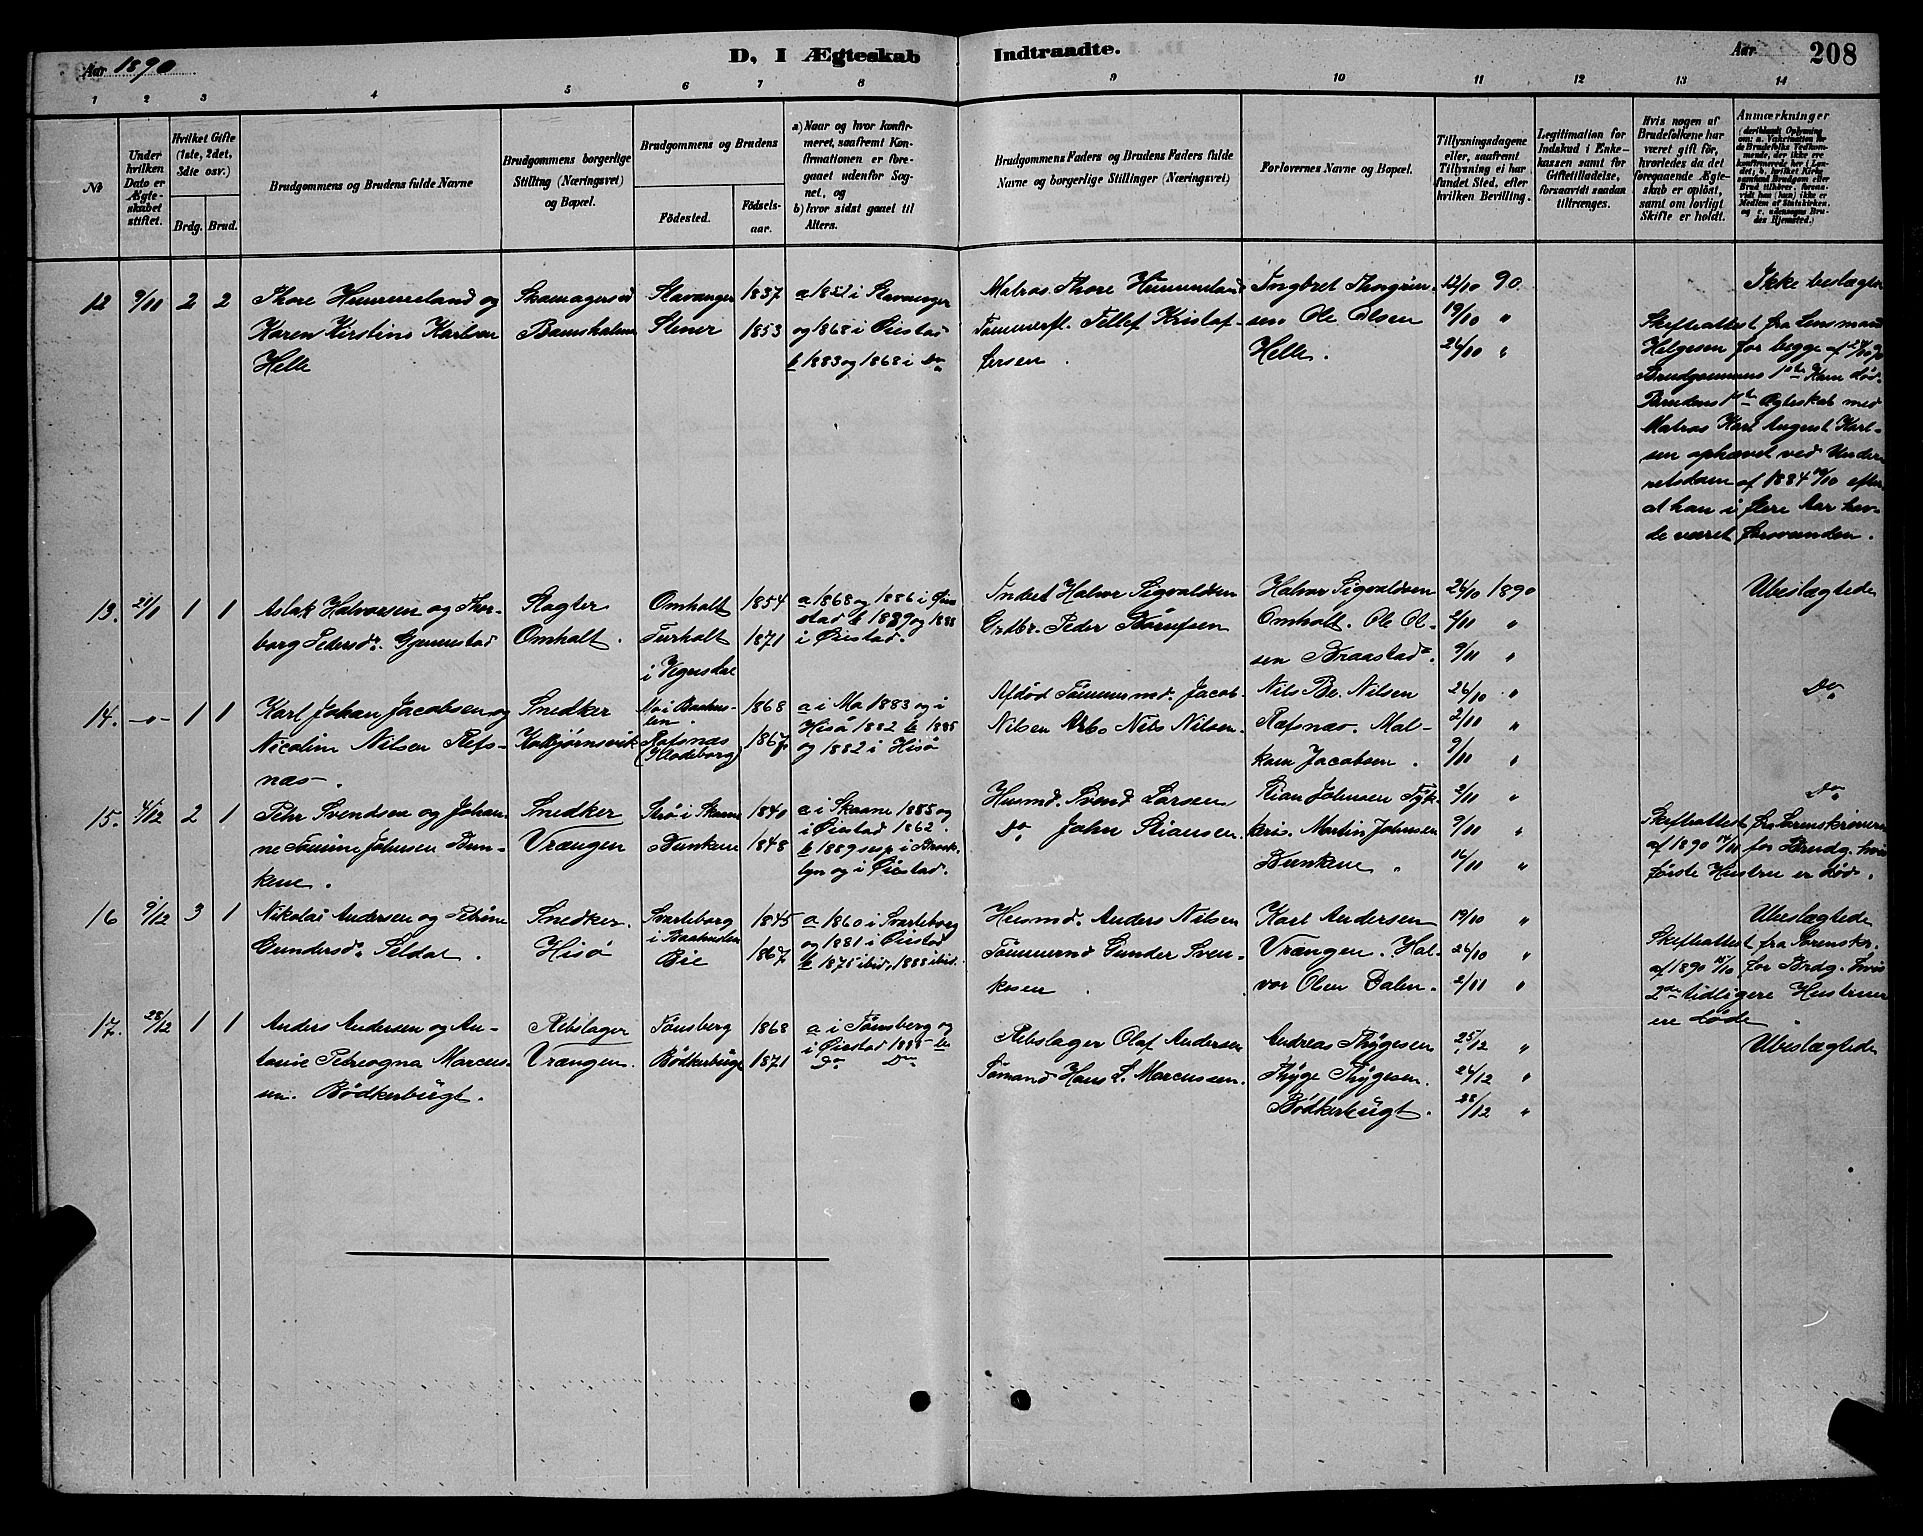 Aar 1890
D, I Ægteskab Indtraadte.
Aar
208
1 2 3 4 5 6 7 8 9 10 11 12 13 14
No
Under hvilken Dato er Ægteskabet stiftet.
Hvilket Gifte (1ste, 2det, 3die osv.)
Brdg. Brud.
Brudgommens og Brudens fulde Navne
Brudgommens borgerlige Stilling (Næringsvei) og Bopæl.
Brudgommens og Brudens
Födested. Födsels-aar.
a) Naar og hvor konfirmeret, saafremt Konfirmationen er foregaaet udenfor Sognet, og
b) hvor sidst gaaet til Alters.
Brudgommens Faders og Brudens Faders fulde Navne og borgerlige Stillinger (Næringsvei)
Forlovernes Navne og Bopæl.
Tillysningsdagene eller, saafremt Tillysning ei har fundet Sted, efter hvilken Bevilling.
Legitimation for Indskud i Enkekassen samt for Giftetilladelse, forsaavidt saadan tiltrænges.
Hvis nogen af Brudefolkene har været gift för, hvorledes da det foregaaende Ægteskab er oplöst, samt om lovligt Skifte er holdt.
Anmærkninger
12 9/11 2 2
Thore Hummeland og
Karen Kirstine Karlsen
Helle
Stavanger 1837
1853
a 1851 i Stavanger
og 1868 i Øiestad
b 1883 og 1868 i Do
Matros Thore Hummeland
Tømmerfl. Tellef Kristof-
fersen
Ingbret Thorgrim-
sen Ole Olsen
Helle.
12/10 90
19/10 "
26/10 "
Ikke beslægtede
Skifteattest fra Lensmand
Helgesen for begge af
Brudgommens 1ste Kone død.
Brudens 1ste Ægteskab med
Matros Karl August Karl-
sen ophævet ved Under-
retsdom af 1884 efter
at han i flere Aar hav-
de været forsvunden.
13. 1 1
Aslak Halvorsen og Thor-
borg Pedersd. Gjennestad
Slagter
Omholt.
Omholt 1854
Furholt 1871
i Vegusdal
a 1868 og 1886 i Øie
stad b 1889 og 1888
i Øiestad.
Inderst Halvor Sigvaldsen
Grdbr. Peder
Halvor Sigvaldsen
Omholt. Ole Ol-
sen Braastad.
26/10 1890
2/11 "
9/11 "
Ubeslægtede
14. -"- 1 1
Karl Johan Jacobsen og
Nicoline Nilsen Refs-
næs
Snedker
Kolbjørnsvik
Mo i Baahus-
len. 1868
Refsnæs 1867
(Klodeborg)
a i Mo 1883 og i
Hisø 1882 b 1885
og 1882 i Hisø
Afdød Tømmermd. Jacob
Nilsen Arb. Nils Nilsen
Nils Be. Nilsen
Refsnæs. Mal-
kom Jacobsen.
26/10 "
2/11 "
9/11 "
Do
15. 4/12 2 1
Pehr Svendsen og Johan-
ne Tomine Johnsen Bun-
kene.
Snedker
Vrængen
i Skaane 1840
Bunkene 1848
a i Skaane 1855 og
i Øiestad 1862.
b 1889 resp i Brook-
lyn og i Øiestad.
Husmd. Svend Larsen
Do John Stiansen.
Stian Johnsen
Martin Johnsen
Bunkene.
2/11 "
9/11 "
16/11 "
Do
Skifteattest fra Sorenskriveren
af 1890 for Brudg. hvis
første Hustru er død.
16 9/12 3 1
Nikolai Andersen og Petrine
Gundersd. Seldal.
Snedker.
Hisø
Svarteborg 1845
i Baahuslen
Bie 1867
a 1860 i Svarteborg
og 1881 i Øiestad
b 1875 ibid, 1888 ibid.
Husmd. Anders Nilsen
Tømmermd Gunder Sven-
kesen
Karl Andersen
Vrængen. Hal-
vor Olsen Dalen.
19/10 "
26/10 "
2/11 "
Ubeslægtede
Skifteattest fra Sorenskr.
af 1890 for Brdg. hvis
2de tidligere Hustruer
ere døde.
17. 28/12 1 1
Anders Andersen og An-
tonie Petreogna Marcus-
sen. Bödkerbugt.
Rebslager
Vrængen.
Tønsberg 1868
Bödkerbugt 1871
a i Tønsberg og
i Øiestad 1885 b
Do Do
Rebslager Olaf Andersen
Sømand Hans L. Marcussen.
Andreas Thygesen
Thyge Thygesen.
Bödkerbugt.
25/12 "
26/12 "
28/12 "
Ubeslægtede